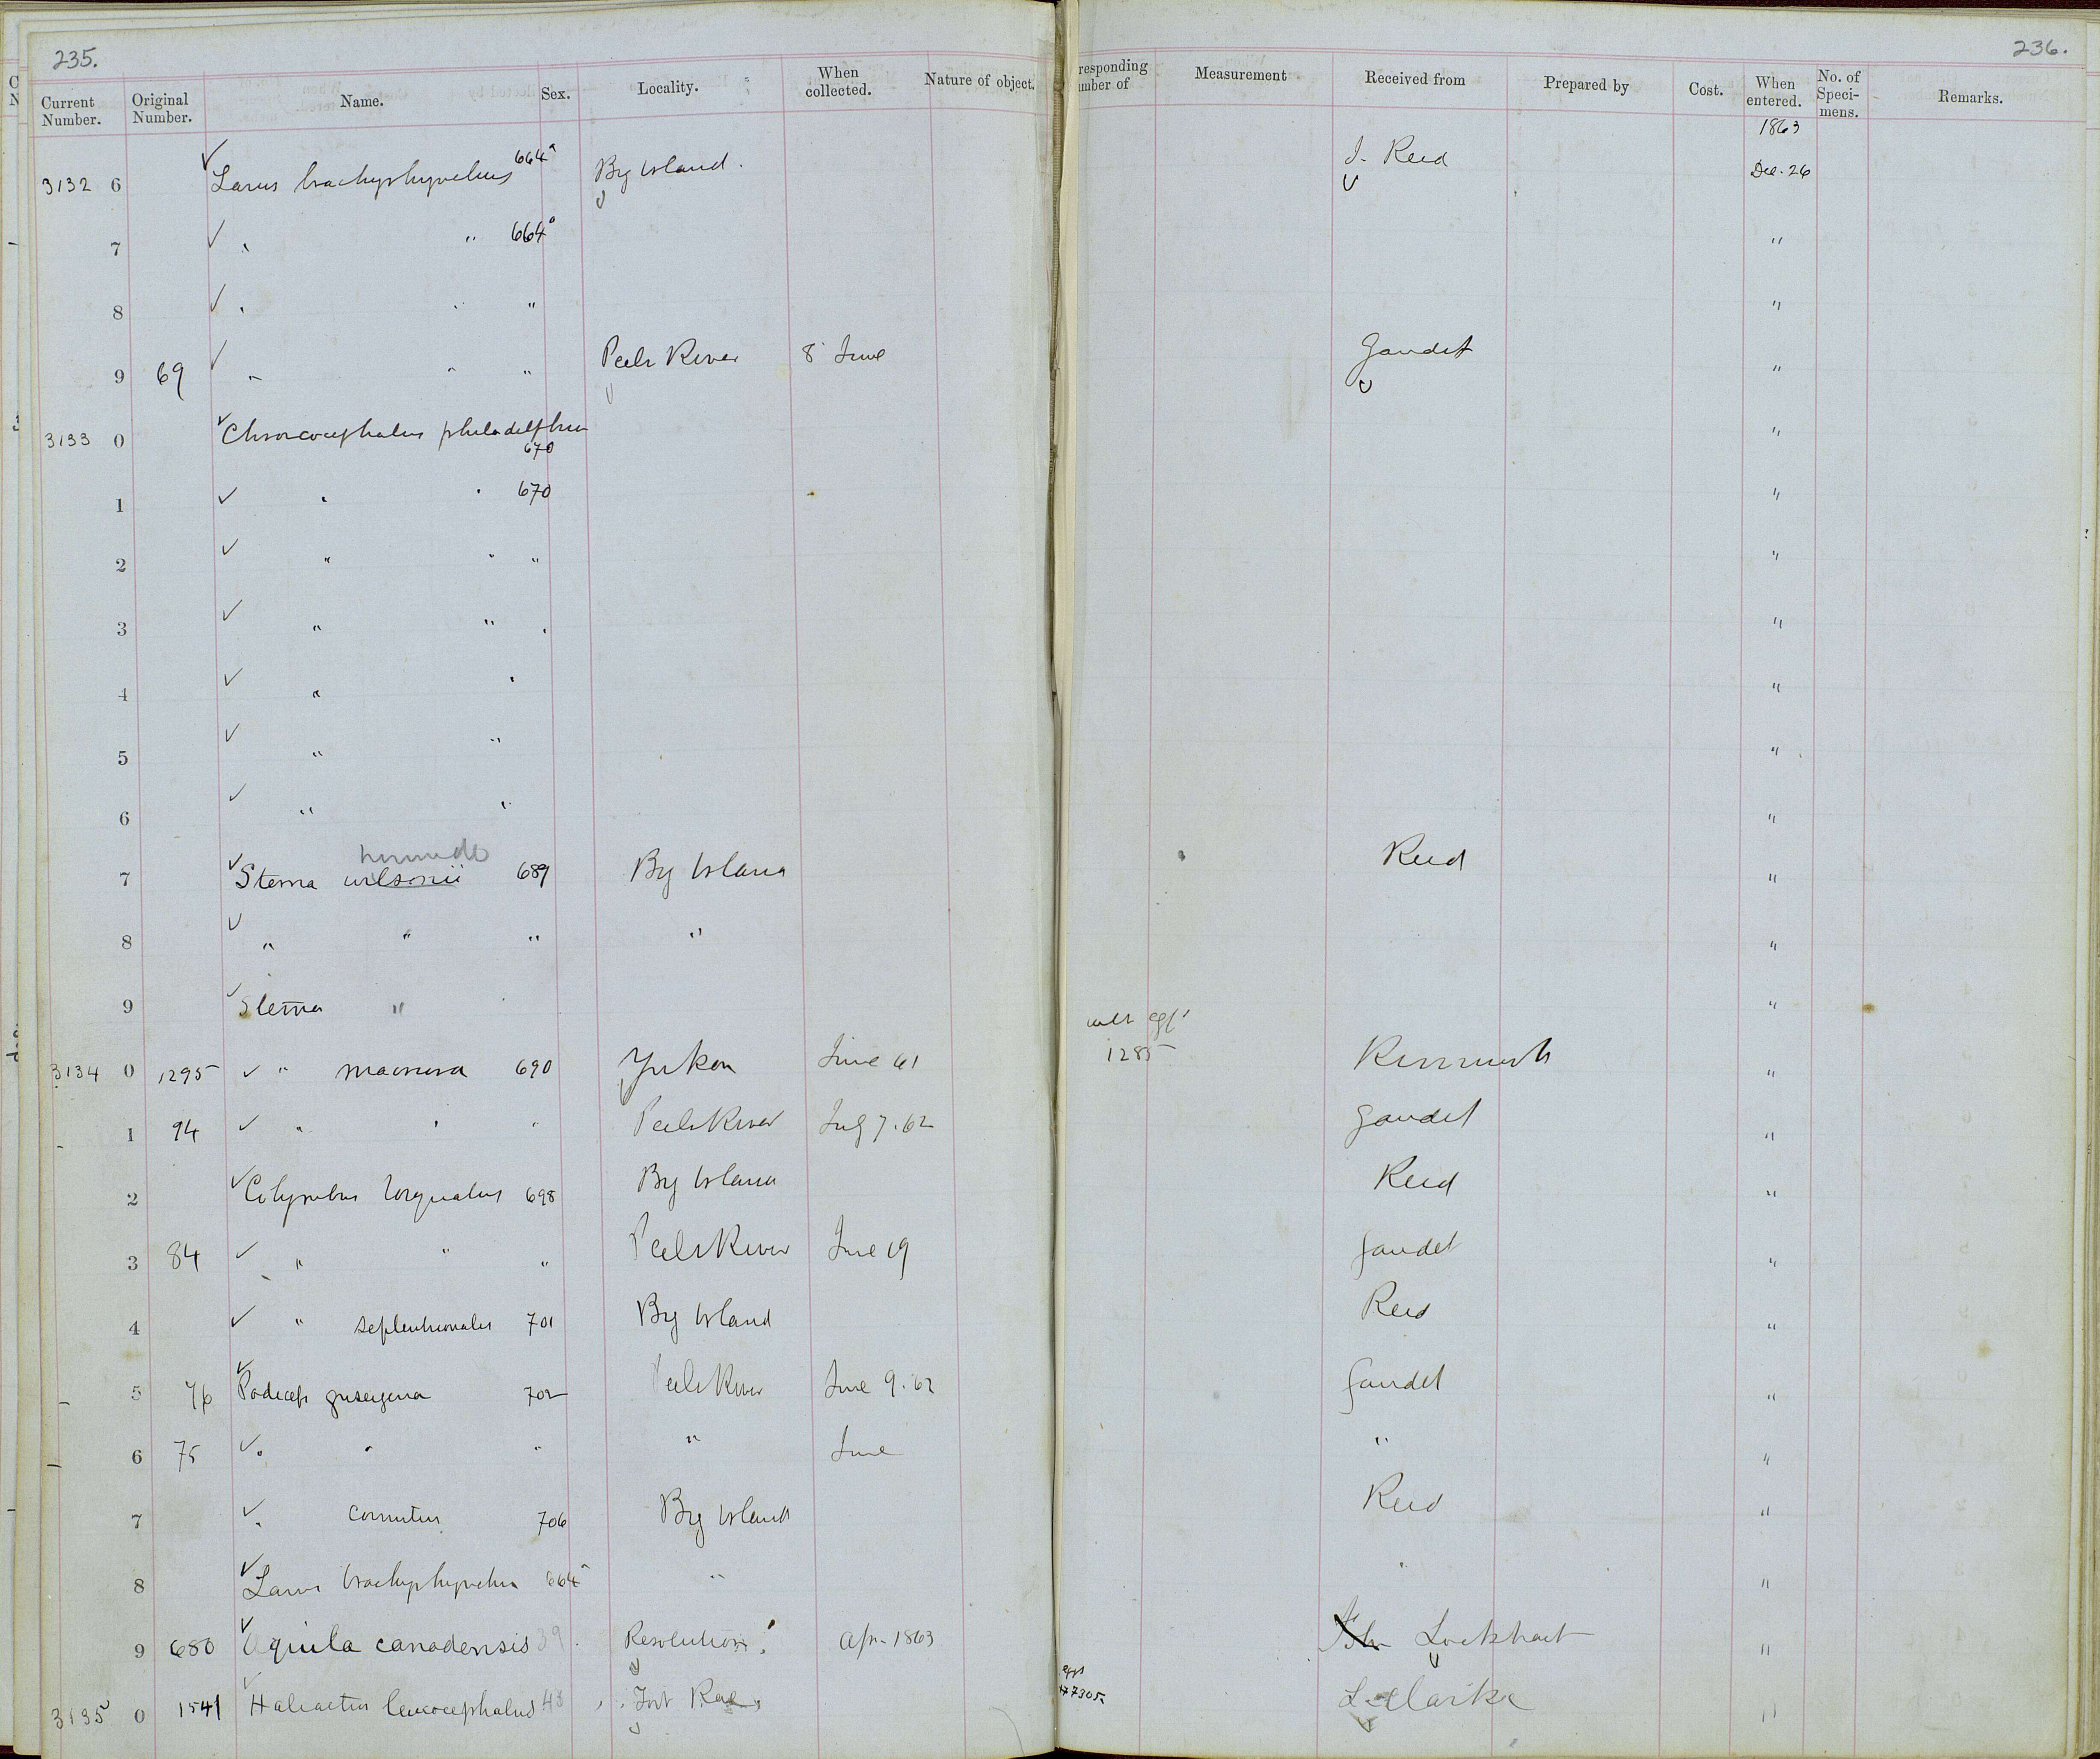 235.
236.
Current Number. Original Number. Name. Sex. Locality. When collected. Nature of object. responding mber of Measurement Received from Prepared by Cost. When entered. No. of Speci-mens. Remarks.
1863
3132 6 ✓ Larus brachyrhynchus 664ª Big Island. J. Reid Dec. 26
7 ✓ " " 664ª "
8 ✓ " " " "
9 69 ✓ " " " Peels River 8 June Gaudet "
3133 0 ✓ Chroicocephalus philadelphia 670 "
1 ✓ " " 670 "
2 ✓ " " " "
3 ✓ " " " "
4 ✓ " " "
5 ✓ " " "
6 ✓ " " "
7 ✓ Sterna wilsonii 689 Big Island Reid "
8 ✓ " " " " "
9 ✓ Sterna " "
3134 0 1295 ✓ " macrura 690 Yukon June 61 with egg 1285 Kennicott "
1 94 ✓ " " " Peels River July 7. 62 Gaudet "
2 ✓ Colymbus torquatus 698 Big Island Reid "
3 84 ✓ " " " Peels River June 19 Gaudet "
4 ✓ " septentrionalis 701 Big Island Reid "
5 76 ✓ Podiceps griseigena 702 Peels River June 9. 62 Gaudet "
6 75 ✓ " " " " June " "
7 ✓ " cornutus 706 Big Island Reid "
8 ✓ Larus brachyrhynchus 664ª " " "
9 680 ✓ Aquila canadensis 39. Resolution Apr. 1863 Lockhart "
3135 0 1541 ✓ Haliaetus leucocephalus 43 Fort Rae eggs 7305 L. Clarke "